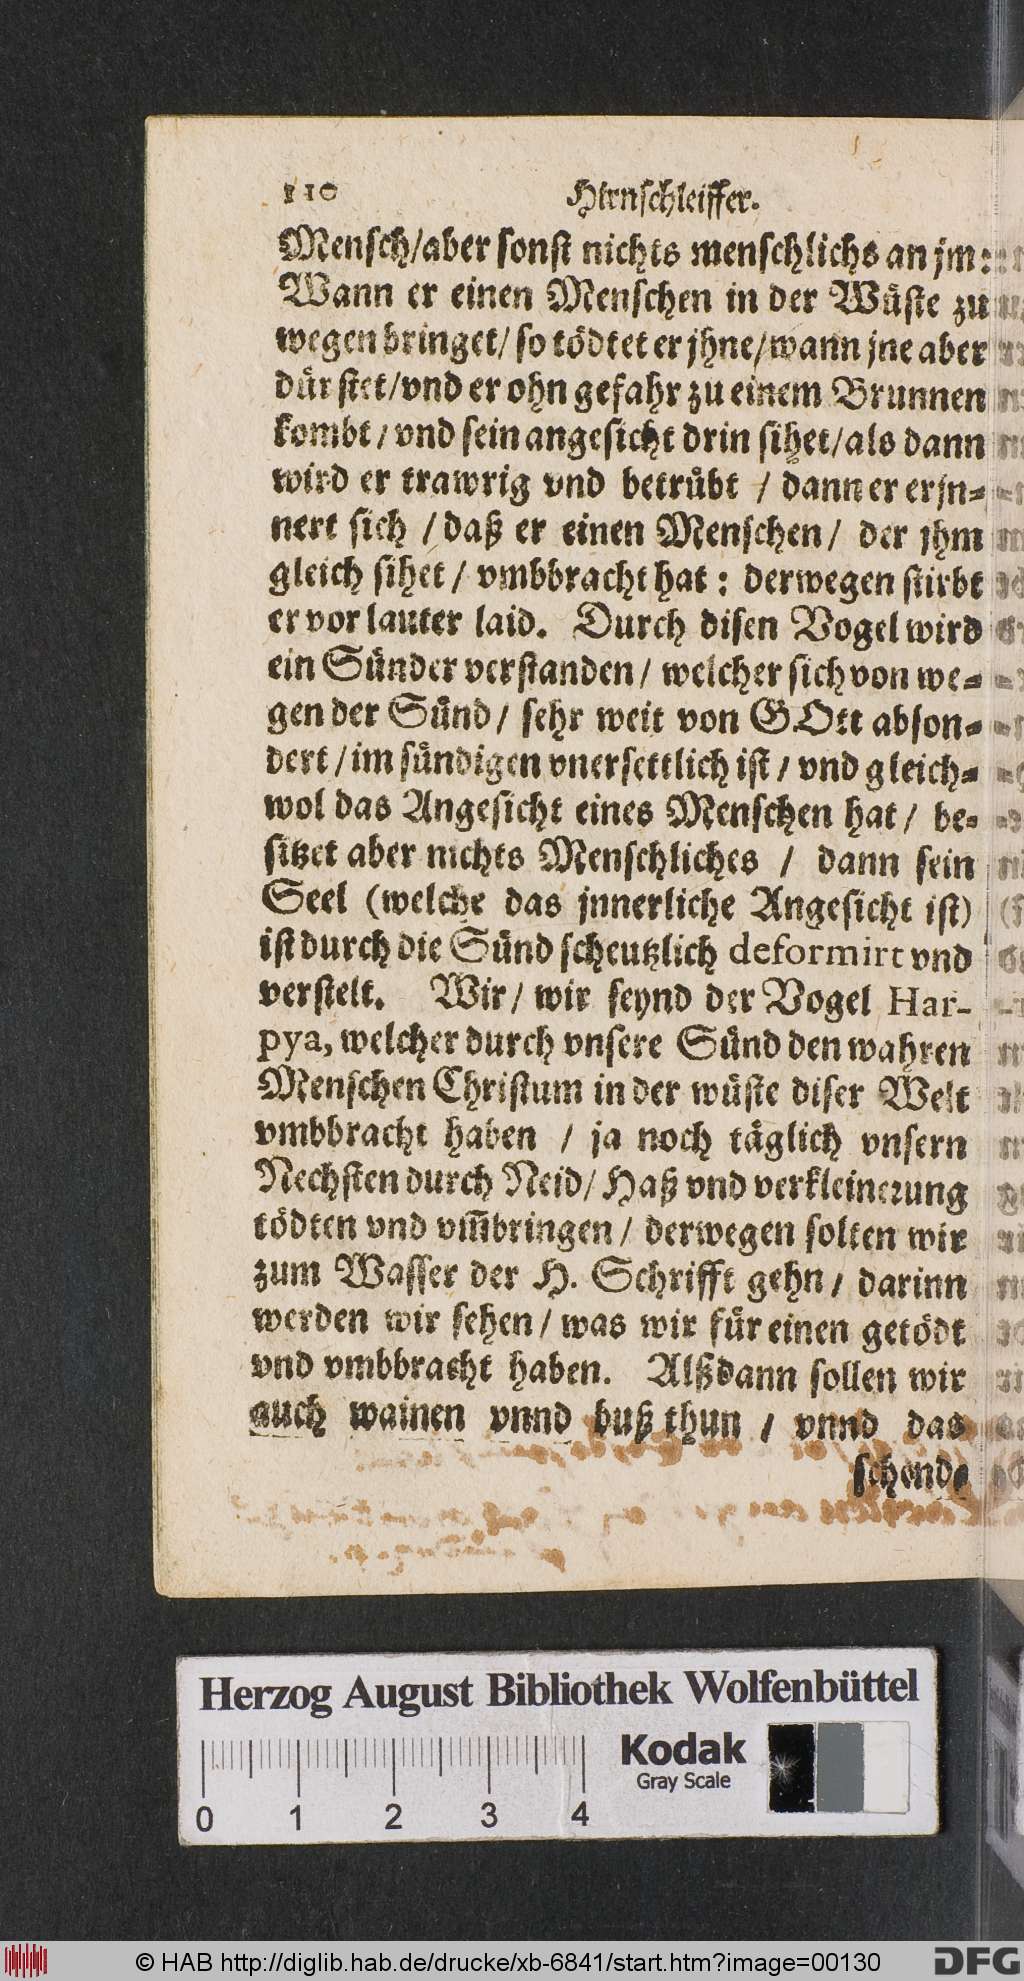 110 Hirnschleiffer.
Mensch/aber sonst nichts menschlichs an jm:
Wann er einen Menschen in der Wüste zu
wegen bringet/ so tödtet er jhne/wann jne aber
dürstet/vnd er ohn gefahr zu einem Brunnen
kombt/ vnd sein angesicht drin sihet/als dann
wird er trawrig vnd betrübt / dann er erjn-
nert sich / daß er einen Menschen/ der jhm
gleich sihet / vmbbracht hat : derwegen stirbt
er vor lauter laid. Durch disen Vogel wird
ein Sünder verstanden/ welcher sich von we-
gen der Sünd/ sehr weit von GOtt abson-
dert/im sündigen vnersettlich ist/ vnd gleich-
wol das Angesicht eines Menschen hat/ be-
sitzet aber nichts Menschliches / dann sein
Seel (welche das jnnerliche Angesicht ist)
ist durch die Sünd scheutzlich deformirt vnd
verstelt. Wir/ wir seynd der Vogel Har-
pya, welcher durch vnsere Sünd den wahren
Menschen Christum in der wüste diser Welt
vmbbracht haben / ja noch täglich vnsern
Nechsten durch Neid/ Haß vnd verkleinerung
tödten vnd vm̃bringen/ derwegen solten wir
zum Wasser der H. Schrifft gehn/ darinn
werden wir sehen/ was wir für einen getödt
vnd vmbbracht haben. Alßdann sollen wir
auch wainen vnnd buß thun / vnnd das
schend-
Herzog August Bibliothek Wolfenbüttel
Kodak
Gray Scale
0 1 2 3 4
© HAB http://diglib.hab.de/drucke/xb-6841/start.htm?image=00130
DFG